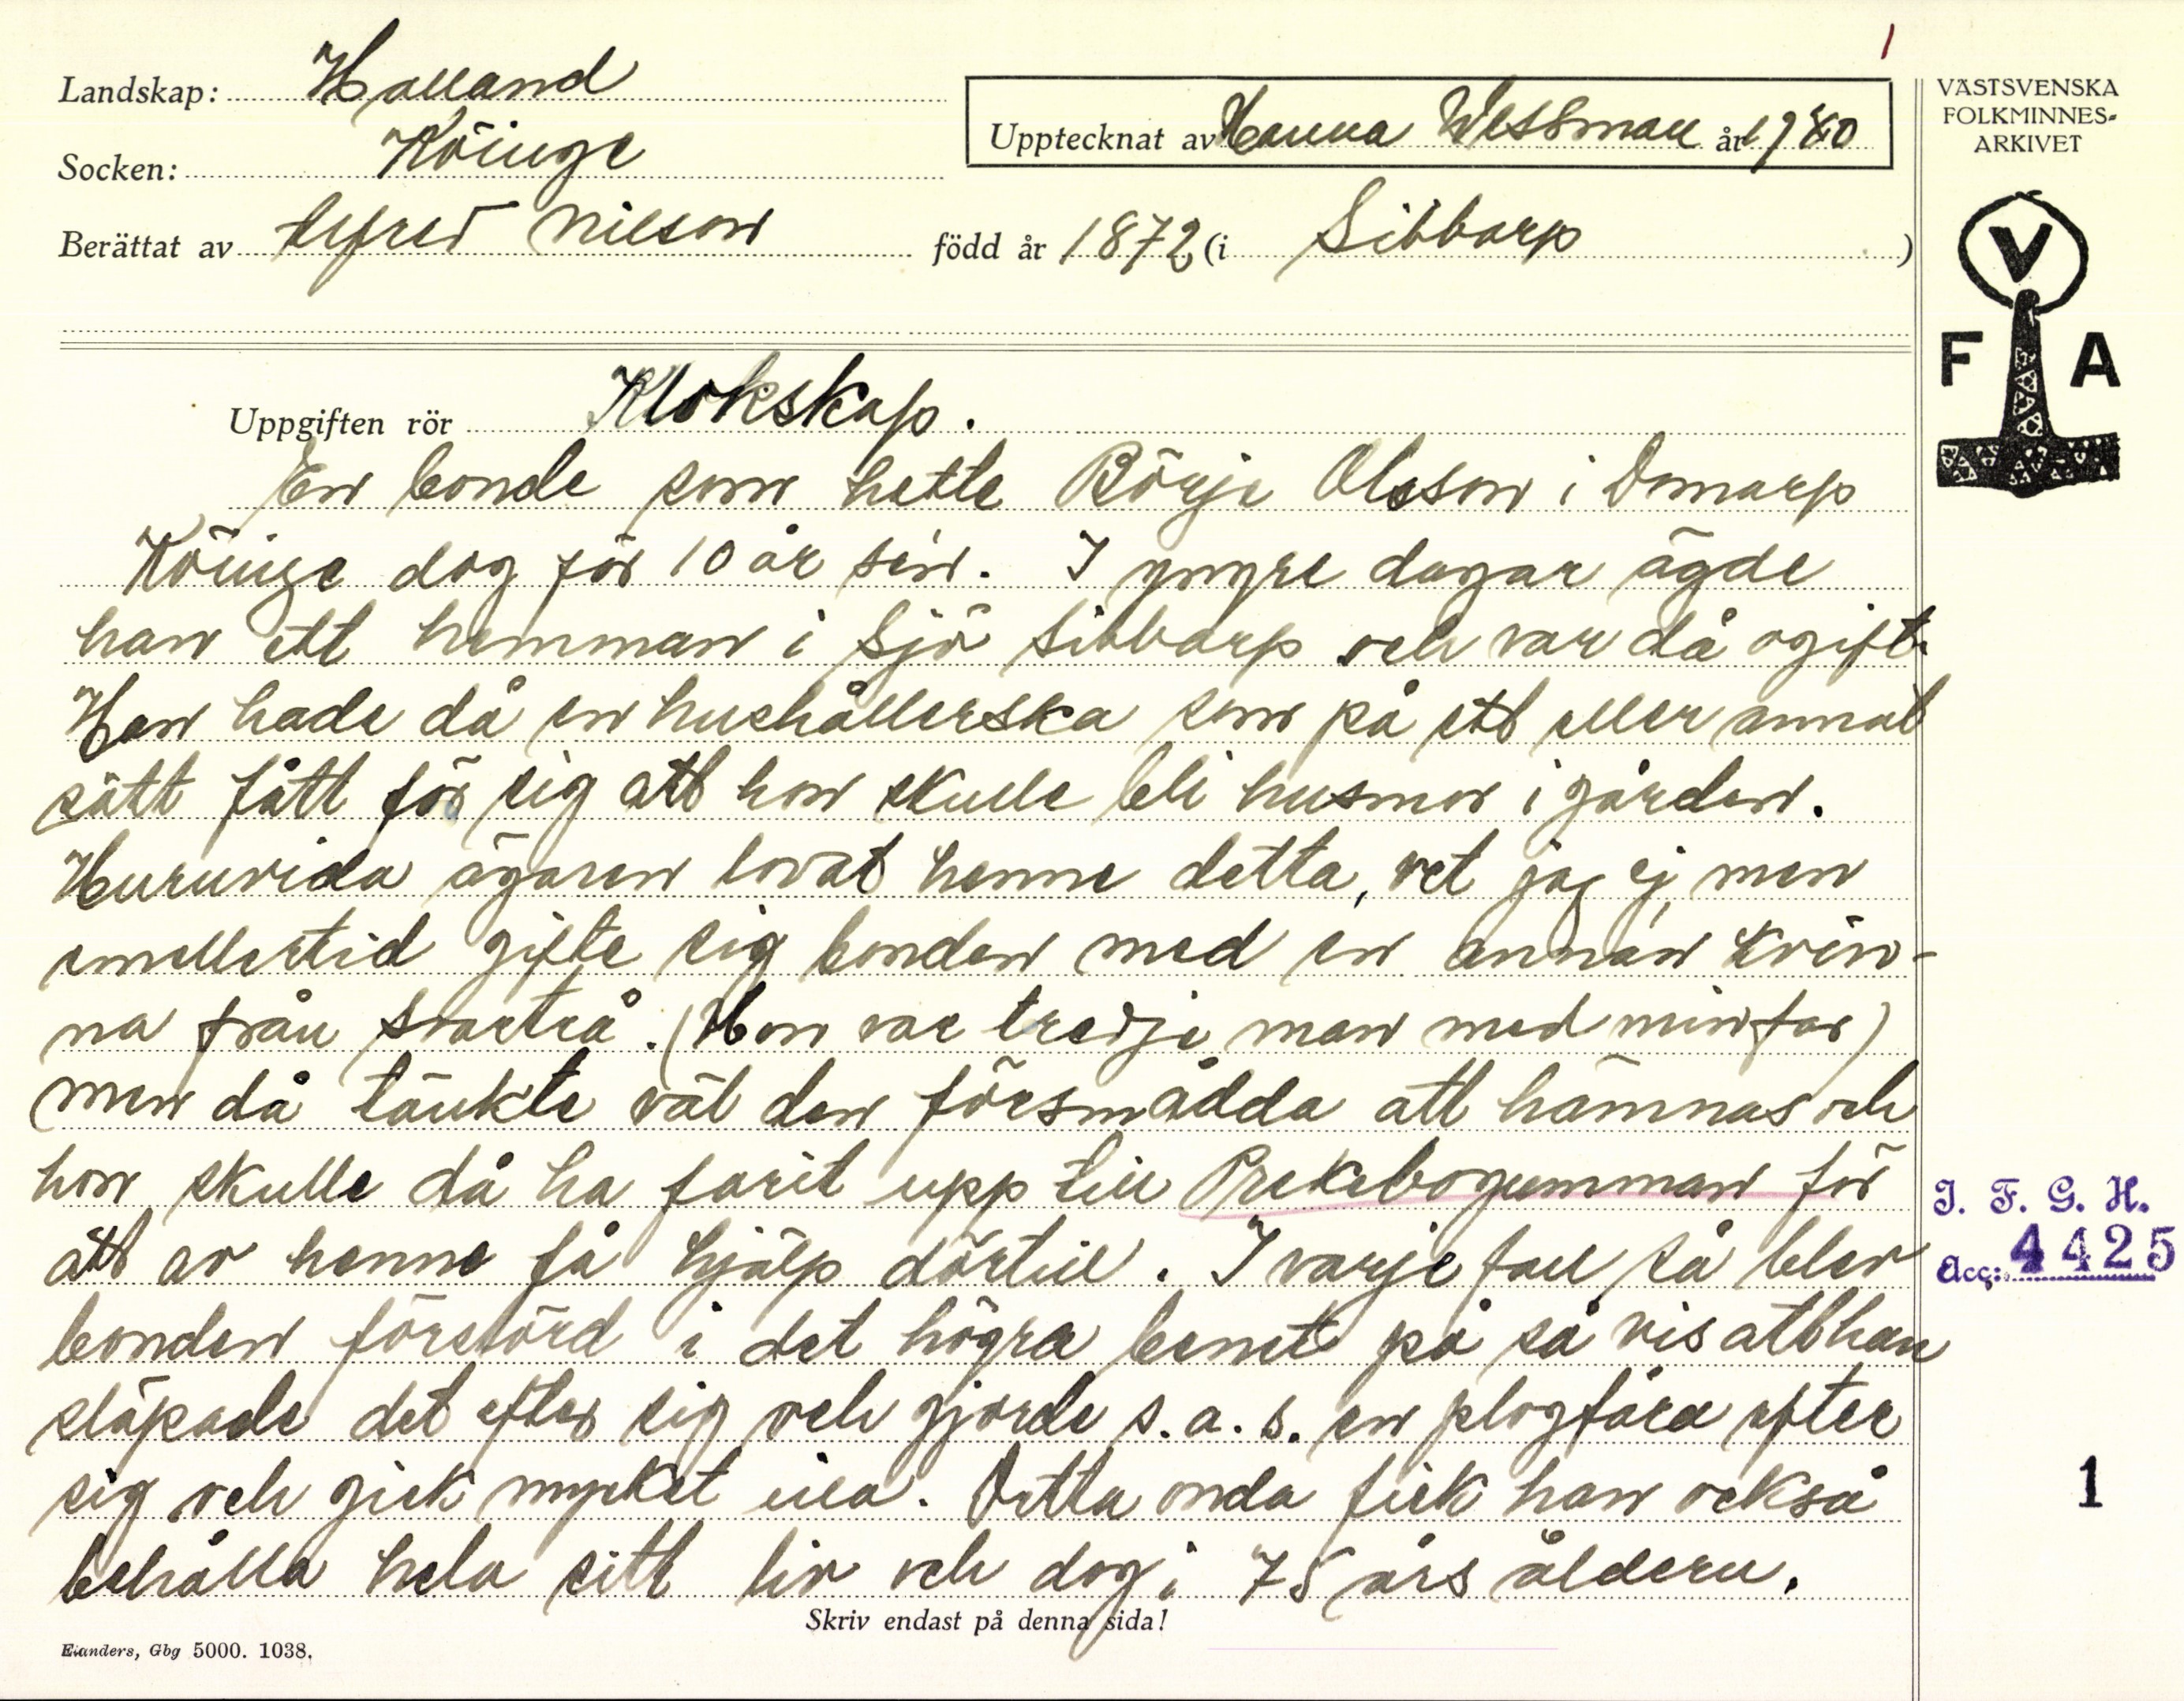 1
Landskap: Halland
Upptecknat av Hanna Wessman år 1940
Socken: Köinge
Berättat av Alfred Nilsson född år 1872 (i Sibbarp)
VÄSTSVENSKA
FOLKMINNES-
ARKIVET
V
F A
Uppgiften rör Klokskap.
En bonde som hette Börje Olsson i Domarp
Köinge dog för 10 år sen. I yngre dagar ägde
han ett hemman i Sjö Sibbarp och var då ogift.
Han hade då en hushållerska som på ett eller annat
sätt fått för sig att hon skulle bli husmor i gården.
Huruvida ägaren lovat henne detta, vet jag ej, men
emellertid gifte sig bonden med en annan kvin-
na från Svartrå. (Hon var tredje man med min far)
men då tänkte väl den försmådda att hämnas och
hon skulle då ha farit upp till Prekebogumman för
att av henne få hjälp därtill. I varje fall så blev
bonden förstörd i det högra benet på så vis att han
släpade det efter sig och gjorde s.a.s. en plogfåra efter
sig och gick mycket illa. Detta onda fick han också
behålla hela sitt liv och dog i 75 års åldern.
I. F. G. H.
Acc: 4425
1
Skriv endast på denna sida!
Elanders, Gbg 5000. 1038.